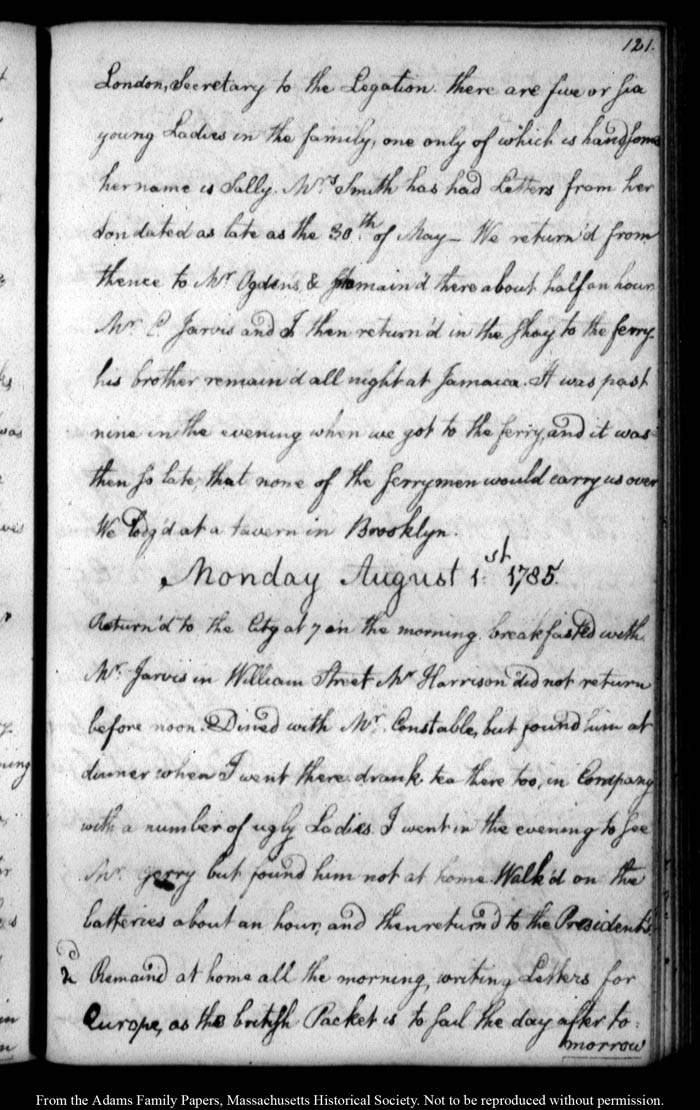 121.
London, Secretary to the Legation. there are five or six
young Ladies in the family, one only of which is handsome
her name is Sally. Mrs Smith has had Letters from her
Son dated as late as the 30th. of May — We return'd from
thence to Mr Ogden's & remain'd there about half an hour.
Mr. C. Jarvis and I then return'd in the Shay to the ferry.
his brother remain'd all night at Jamaica. It was past
nine in the evening when we got to the ferry, and it was
then so late, that none of the ferrymen would carry us over
We lodg'd at a tavern in Brooklyn.
Monday August 1st. 1785.
Return'd to the City at 7 in the morning. breakfasted with
Mr. Jarvis in William Street Mr Harrison did not return
before noon. Dined with Mr. Constable, but found him at
dinner when I went there. drank tea there too, in Company
with a number of ugly Ladies. I went in the evening to see
Mr. Gerry but found him not at home. Walk'd on the
batteries about an hour, and then return'd to the President's.
2d Remain'd at home all the morning, writing Letters for
Europe, as the british Packet is to sail the day after to-
morrow
From the Adams Family Papers, Massachusetts Historical Society. Not to be reproduced without permission.